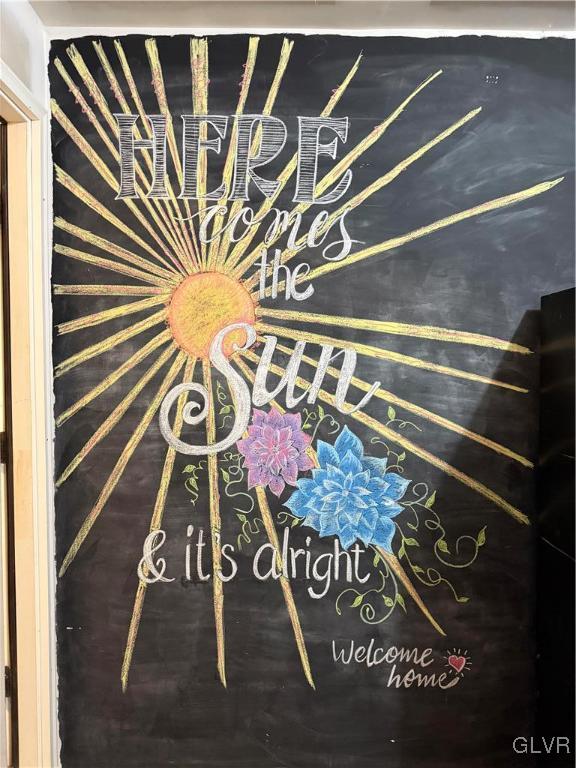 HERE
comes
the
Sun
& it's alright
Welcome
home
GLVR